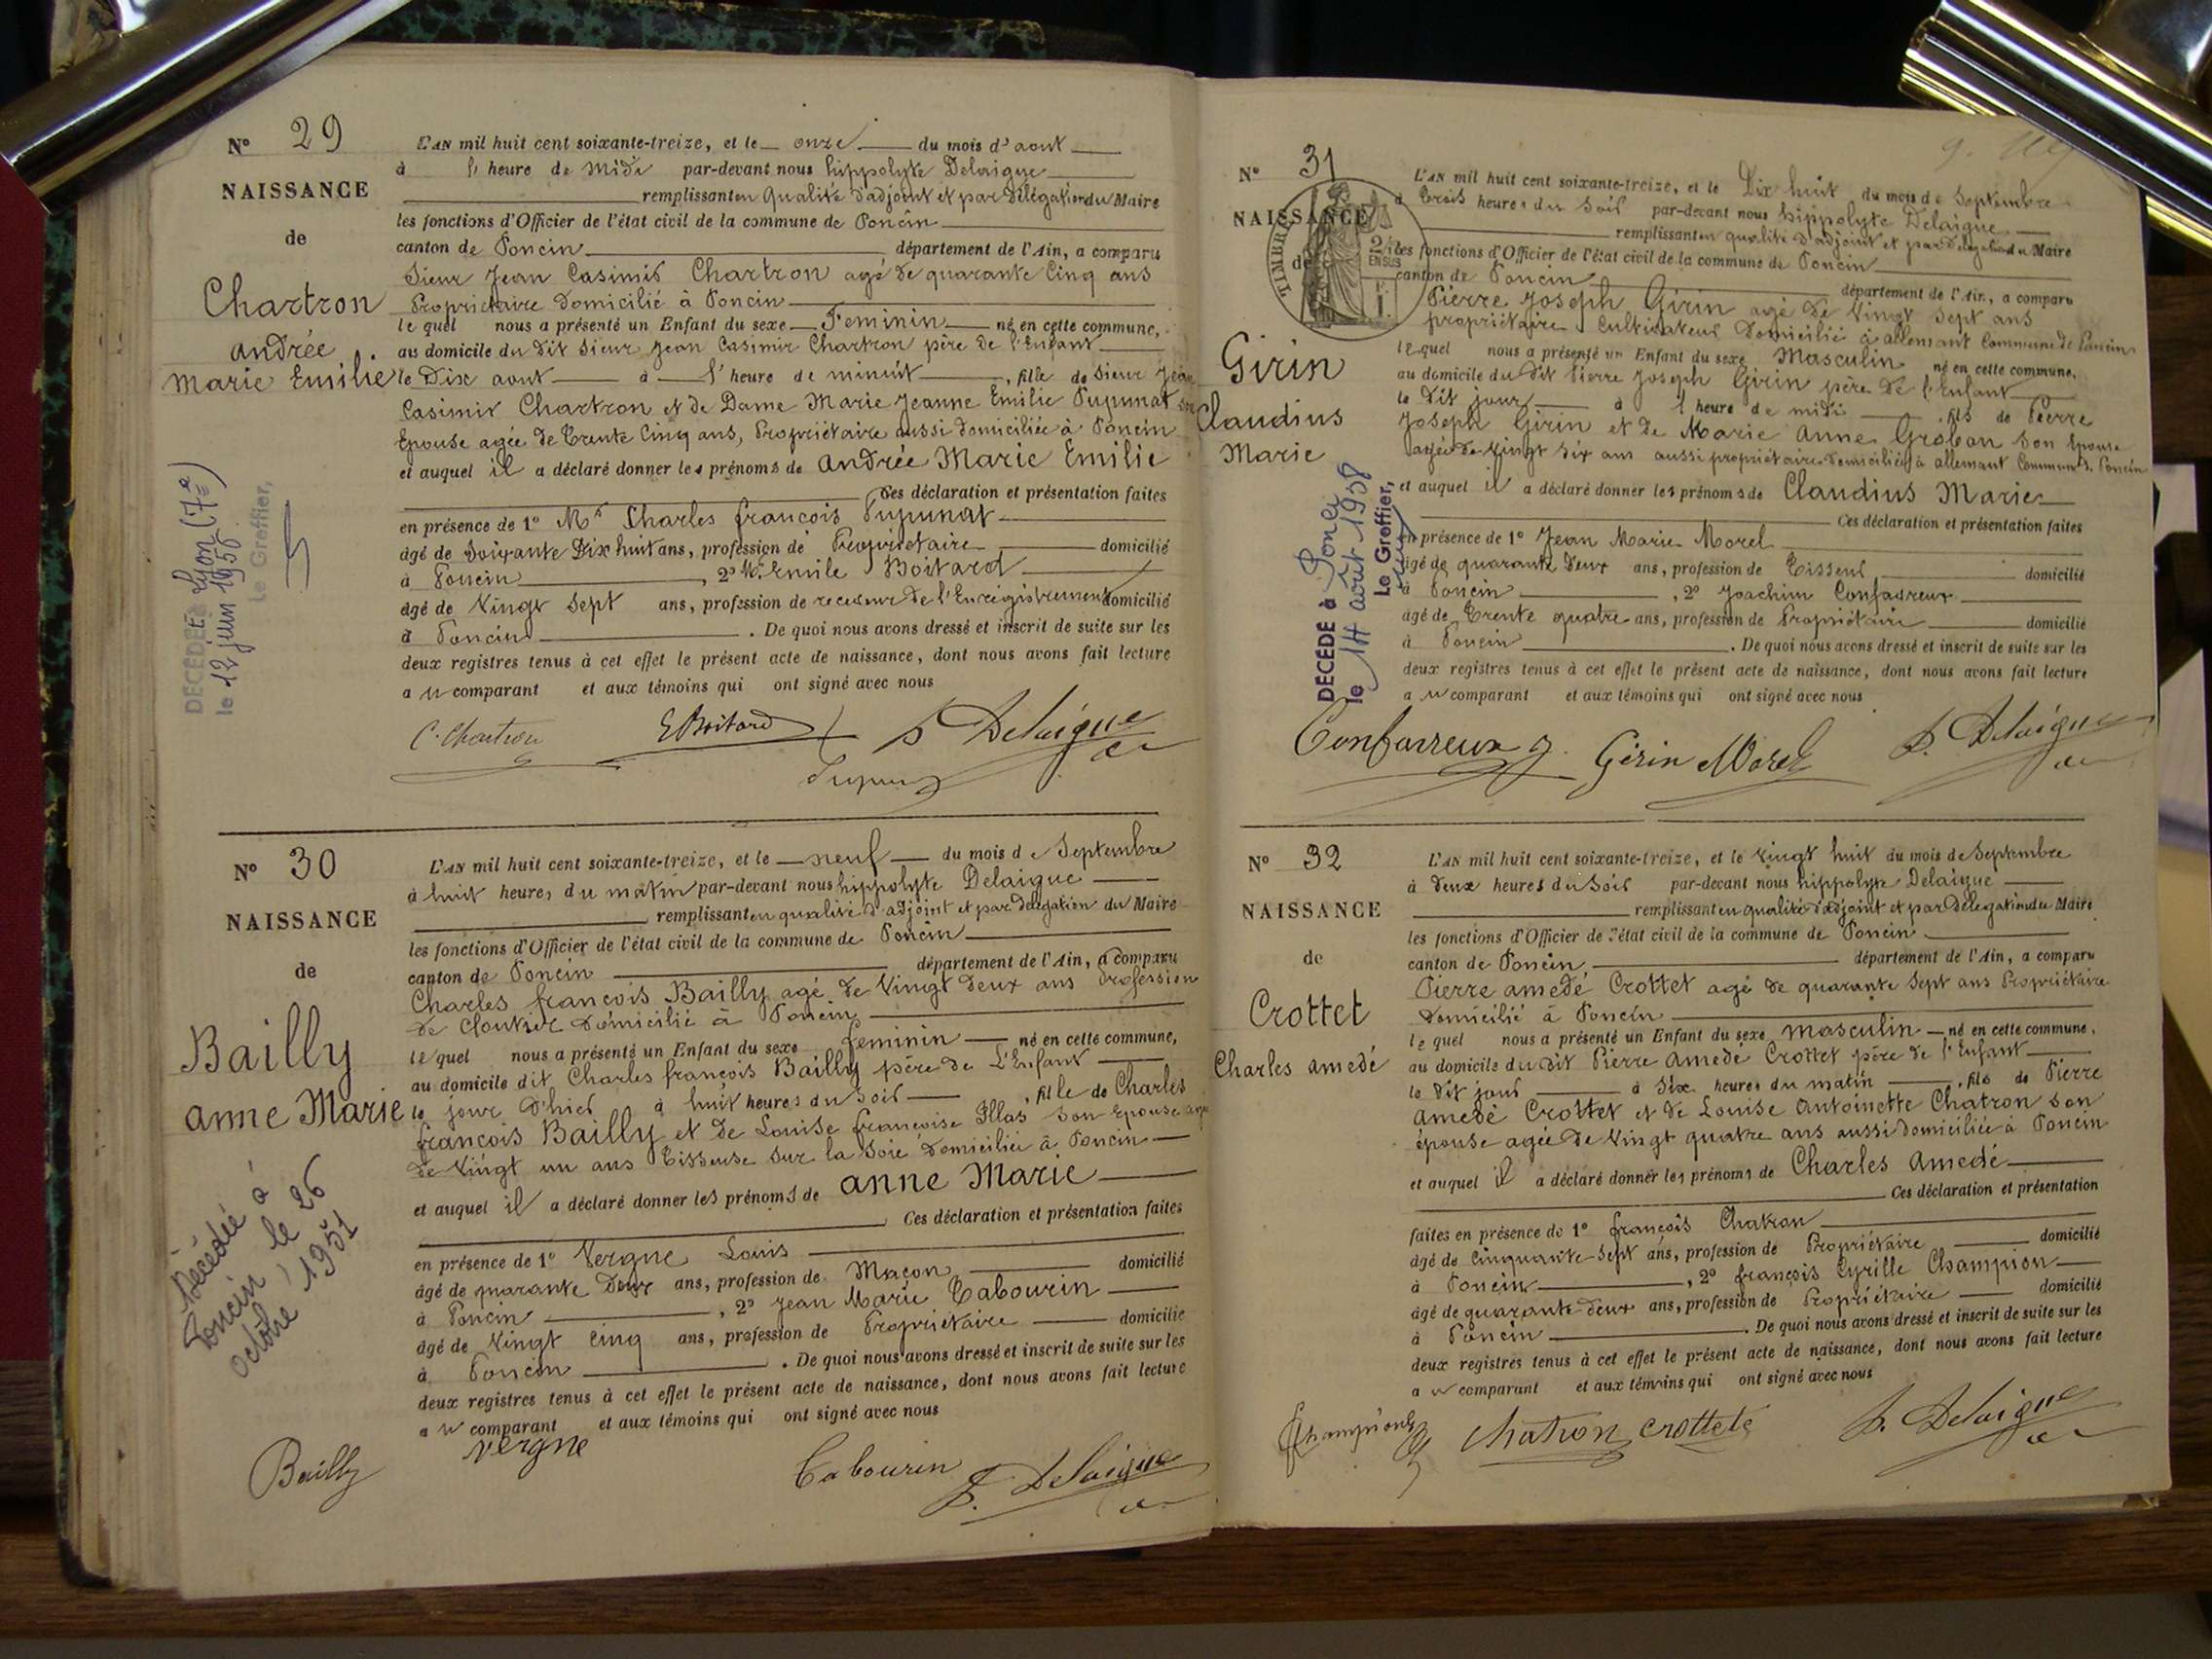 N° 29
NAISSANCE
de
Chartron
andrée
Marie Emilie
DÉCÉDÉE à Lyon (7e)
le 12 juin 1958
Le Greffier,
L'AN mil huit cent soixante-treize, et le onze du mois d'aout
à l'heure de midi par-devant nous hippolyte Delaigue
remplissant en qualité d'adjoint et par délégation du Maire
les fonctions d'Officier de l'état civil de la commune de Poncin
canton de Poncin département de l'Ain, a comparu
Sieur Jean Casimir Chartron agé de quarante Cinq ans
Propriétaire domicilié à Poncin
le quel nous a présenté un Enfant du sexe Feminin né en cette commune,
au domicile du dit Sieur Jean Casimir Chartron père de l'Enfant
le Dix aout à l'heure de minuit , fille de Sieur Jean
Casimir Chartron et de Dame Marie Jeanne Emilie Pupunat son
Epouse agée de Trente Cinq ans, Propriétaire aussi domiciliée à Poncin
et auquel il a déclaré donner les prénoms de andrée Marie Emilie
Ces déclaration et présentation faites
en présence de 1° Mr Charles françois Pupunat
âgé de Soixante Dix huit ans, profession de Propriétaire domicilié
à Poncin , 2° Mr Emile Boitard
âgé de Vingt Sept ans, profession de receveur de l'Enregistrement domicilié
à Poncin . De quoi nous avons dressé et inscrit de suite sur les
deux registres tenus à cet effet le présent acte de naissance, dont nous avons fait lecture
a u comparant et aux témoins qui ont signé avec nous
C. Chartron EBoitard h Delaigue
N° 30
NAISSANCE
de
Bailly
anne Marie
Décédée à
Poncin, le 26
octobre 1951
L'AN mil huit cent soixante-treize, et le neuf du mois de Septembre
à huit heures du matin par-devant nous hippolyte Delaigue
remplissant en qualité d'adjoint et par délégation du Maire
les fonctions d'Officier de l'état civil de la commune de Poncin
canton de Poncin département de l'Ain, a comparu
Charles françois Bailly agé de Vingt deux ans Profession
de Cloutier domicilié à Poncin
le quel nous a présenté un Enfant du sexe feminin né en cette commune,
au domicile dit Charles françois Bailly père de L'Enfant
le jour d'hier à huit heures du Soir , fille de Charles
françois Bailly et de Louise françoise Illas Son Epouse agée
de Vingt un ans Tisseuse sur la Soie domiciliée à Poncin
et auquel il a déclaré donner les prénoms de anne Marie
Ces déclaration et présentation faites
en présence de 1° Vergne Louis
âgé de quarante Deux ans, profession de Maçon domicilié
à Poncin , 2° Jean Marie Tabourin
âgé de Vingt Cinq ans, profession de Propriétaire domicilié
à Poncin . De quoi nous avons dressé et inscrit de suite sur les
deux registres tenus à cet effet le présent acte de naissance, dont nous avons fait lecture
a u comparant et aux témoins qui ont signé avec nous
Bailly Vergne Tabourin h. Delaigue
N° 31
NAISSANCE
de
TIMBRE
2/10
EN SUS
Girin
Claudius
Marie
DÉCÉDÉ à Poncin
le 14 août 1958
Le Greffier,
L'AN mil huit cent soixante-treize, et le Dix huit du mois de Septembre
à Trois heures du Soir par-devant nous hippolyte Delaigue
remplissant en qualité d'adjoint et par délégation du Maire
les fonctions d'Officier de l'état civil de la commune de Poncin
canton de Poncin département de l'Ain, a comparu
Pierre Joseph Girin agé de Vingt Sept ans
propriétaire Cultivateur Domicilié à allement Commune de Poncin
le quel nous a présenté un Enfant du sexe Masculin né en cette commune,
au domicile du dit Pierre Joseph Girin père de l'Enfant
le Dit jour à l'heure de midi , fils de Pierre
Joseph Girin et de Marie anne Groban Son Epouse
agée de Vingt Six ans aussi propriétaire domiciliée à allement Commune de Poncin
et auquel il a déclaré donner les prénoms de Claudius Marie
Ces déclaration et présentation faites
en présence de 1° Jean Marie Morel
âgé de quarante Deux ans, profession de Tisseur domicilié
à Poncin , 2° Joachim Confavreux
âgé de Trente quatre ans, profession de Propriétaire domicilié
à Poncin . De quoi nous avons dressé et inscrit de suite sur les
deux registres tenus à cet effet le présent acte de naissance, dont nous avons fait lecture
a u comparant et aux témoins qui ont signé avec nous
Confavreux J. Girin Morel h. Delaigue
N° 32
NAISSANCE
de
Crottet
Charles amedé
L'AN mil huit cent soixante-treize, et le Vingt huit du mois de Septembre
à deux heures du Soir par-devant nous hippolyte Delaigue
remplissant en qualité d'adjoint et par délégation du Maire
les fonctions d'Officier de l'état civil de la commune de Poncin
canton de Poncin département de l'Ain, a comparu
Pierre amedé Crottet agé de quarante Sept ans Propriétaire
domicilié à Poncin
le quel nous a présenté un Enfant du sexe masculin né en cette commune,
au domicile du dit Pierre amedé Crottet père de l'Enfant
le Dit jour à Six heures du matin , fils de Pierre
amedé Crottet et de Louise antoinette Chatron son
épouse agée de Vingt quatre ans aussi domiciliée à Poncin
et auquel il a déclaré donner les prénoms de Charles amedé
Ces déclaration et présentation
faites en présence de 1° françois Chatron
âgé de Cinquante-Sept ans, profession de Propriétaire domicilié
à Poncin , 2° françois Cyrille Champion
âgé de quarante-deux ans, profession de Propriétaire domicilié
à Poncin . De quoi nous avons dressé et inscrit de suite sur les
deux registres tenus à cet effet le présent acte de naissance, dont nous avons fait lecture
a u comparant et aux témoins qui ont signé avec nous
Champion Chatron Crottet h. Delaigue